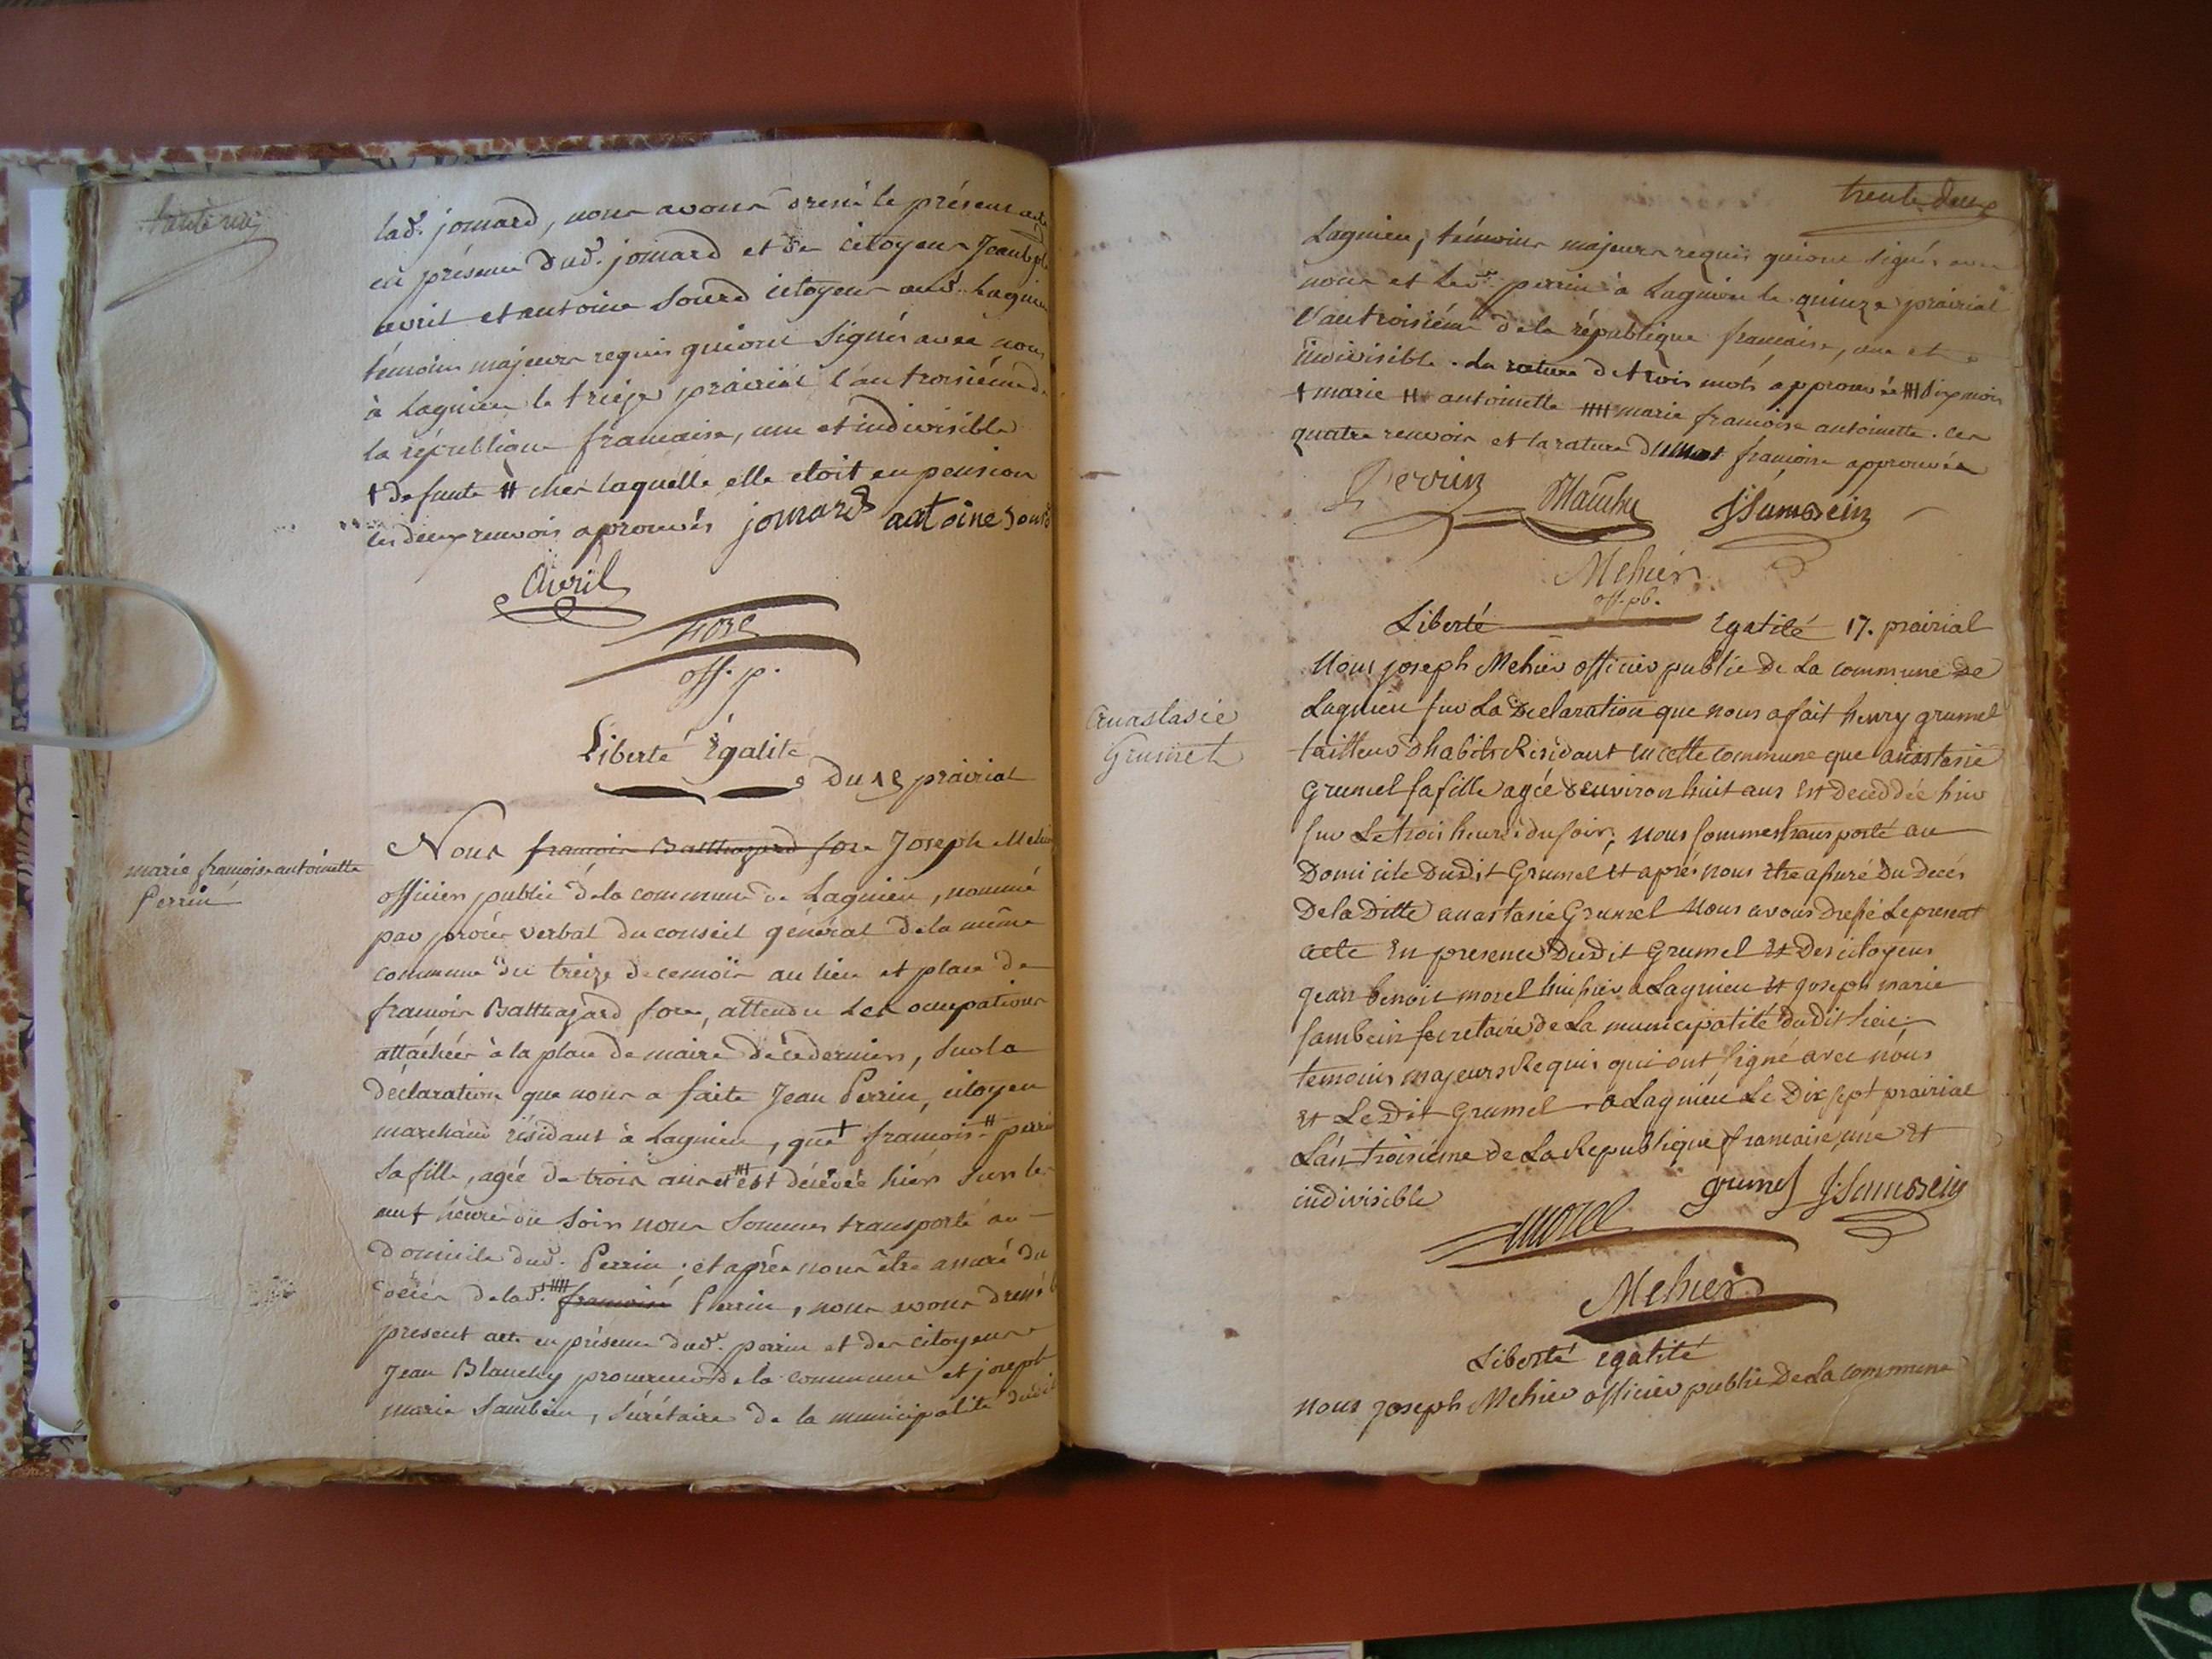 lad. jomard, nous avons dressé le présent acte
en présence dud. jomard et des citoyens Jean
avril et antoine sourd citoyens aud. Lagnieu
témoins majeurs requis qui ont signés avec nous
à Lagnieu le treize prairial l'an troisiéme de
la république française, une et indivisible
+ defunte # chez laquelle elle etoit en pension
les deux renvois aprouvés jomard antoine sourd
Avril
fore
off. p.
Liberté Égalité
Du 15 prairial
marie françoise antoinette
Perrin
Nous françois Balthazard fore Joseph Mehier
officier public de la commune de Lagnieu, nommé
par procés verbal du conseil général de la même
commune du treize de ce mois au lieu et place de
françois Balthazard fore, attendu les occupations
attáchées à la place de maire de ce dernier, sur la
déclaration que nous a faite Jean Perrin, citoyen
marchand résidant à Lagnieu, que + françoise # perrin
sa fille, agée de trois ans et # est décédée hier sur les
neuf heures du soir nous sommes transporté au
domicile dud. Perrin; et après nous être assuré du
décés de lad. françoise Perrin, nous avons dressé le
present acte en présence dud. perrin et des citoyens
Jean Blanchy procureur de la commune et joseph
marie Sambein, sécrétaire de la municipalité dudit
trente deux
Lagnieu, témoins majeurs requis qui ont signés avec
nous et led. perrin à Lagnieu le quinze prairial
l'an troisiéme de la république française, une et
indivisible. La rature de trois mots approuvée # dix mois
+ marie # antoinette # marie françoise antoinette. Ces
quatre renvois et la rature du mot françoise approuvés
Perrin Blanchy JSambein
Mehier
off. pb.
Liberté Egalité 17. prairial
Anastasie
Grumel
Nous joseph Mehier officier public de La commune de
Lagnieu sur La Declaration que nous a fait henry grumel
tailleur d'habits Residant en cette commune que anastasie
Grumel sa fille agée d'environ huit ans est deceddée hier
sur Le trois heures du soir, nous sommes transporté au
Domicile Dudit Grumel et aprés nous etre assuré Du decés
De la Ditte anastasie Grumel Nous avons dressé Le present
acte En presence Dudit Grumel et Des citoyens
jean benoit morel huissier a Lagnieu et joseph marie
sambein secretaire de La municipalité du Dit lieu
temoins majeurs Requis qui ont signé avec nous
et Le Dit Grumel a Lagnieu Le Dix sept prairial
L'an troisième de La Republique francaise une et
indivisible
grumel JSambein
morel
Mehier
Liberté egalité
nous joseph Mehier officier public De La commune